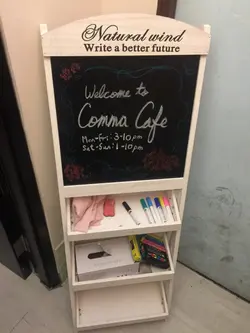 Natural wind
Write a better future
Welcome to
Comma Cafe
Mon-fri: 3-10pm
Sat-Sun: 1-10pm